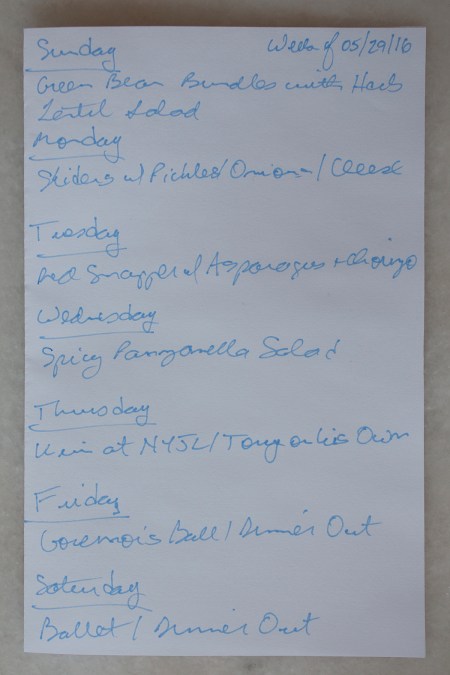 Sunday Week of 05/29/16
Green Bean Bundles with Herb
Lentil Salad
Monday
Sliders w/ Pickles/Onion/Cheese
Tuesday
Red Snapper w/ Asparagus + Chorizo
Wednesday
Spicy Panzanella Salad
Thursday
Kim at NYJL/Tony on his Own
Friday
Governor's Ball/Dinner Out
Saturday
Ballet/Dinner Out